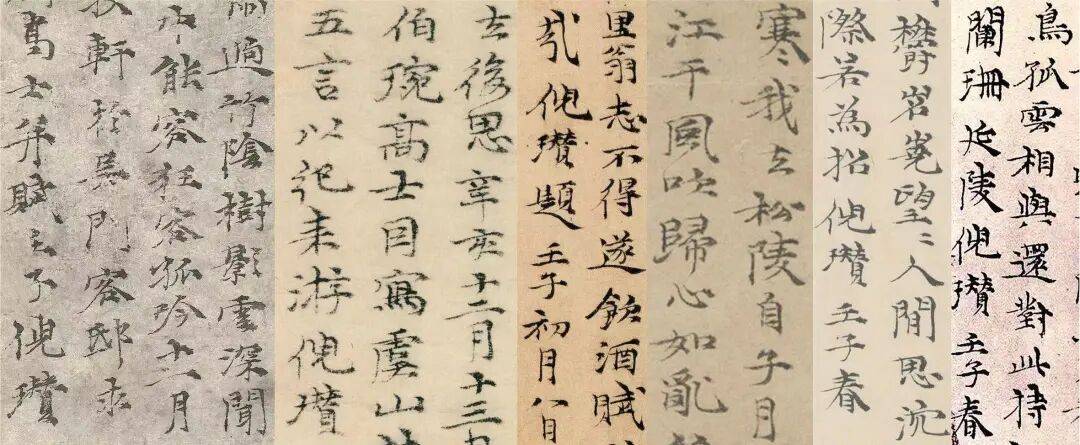 鳥孤雲相與還對此持
闌珊延陵倪瓚壬子春
欝岧嶤望〻人間思沉
際若為招倪瓚壬子春
寒我去松陵自子月
江干風吹歸心如亂
里翁志不得遂飲酒賦
倪瓚題壬子初月八日
去後思辛亥十二月十三
伯琬高士因寫虞山
五言以記來游倪瓚
過竹陰樹影雲深聞
能容狂客孤吟十一月
軒於吳門客邸
高士并賦壬子倪瓚